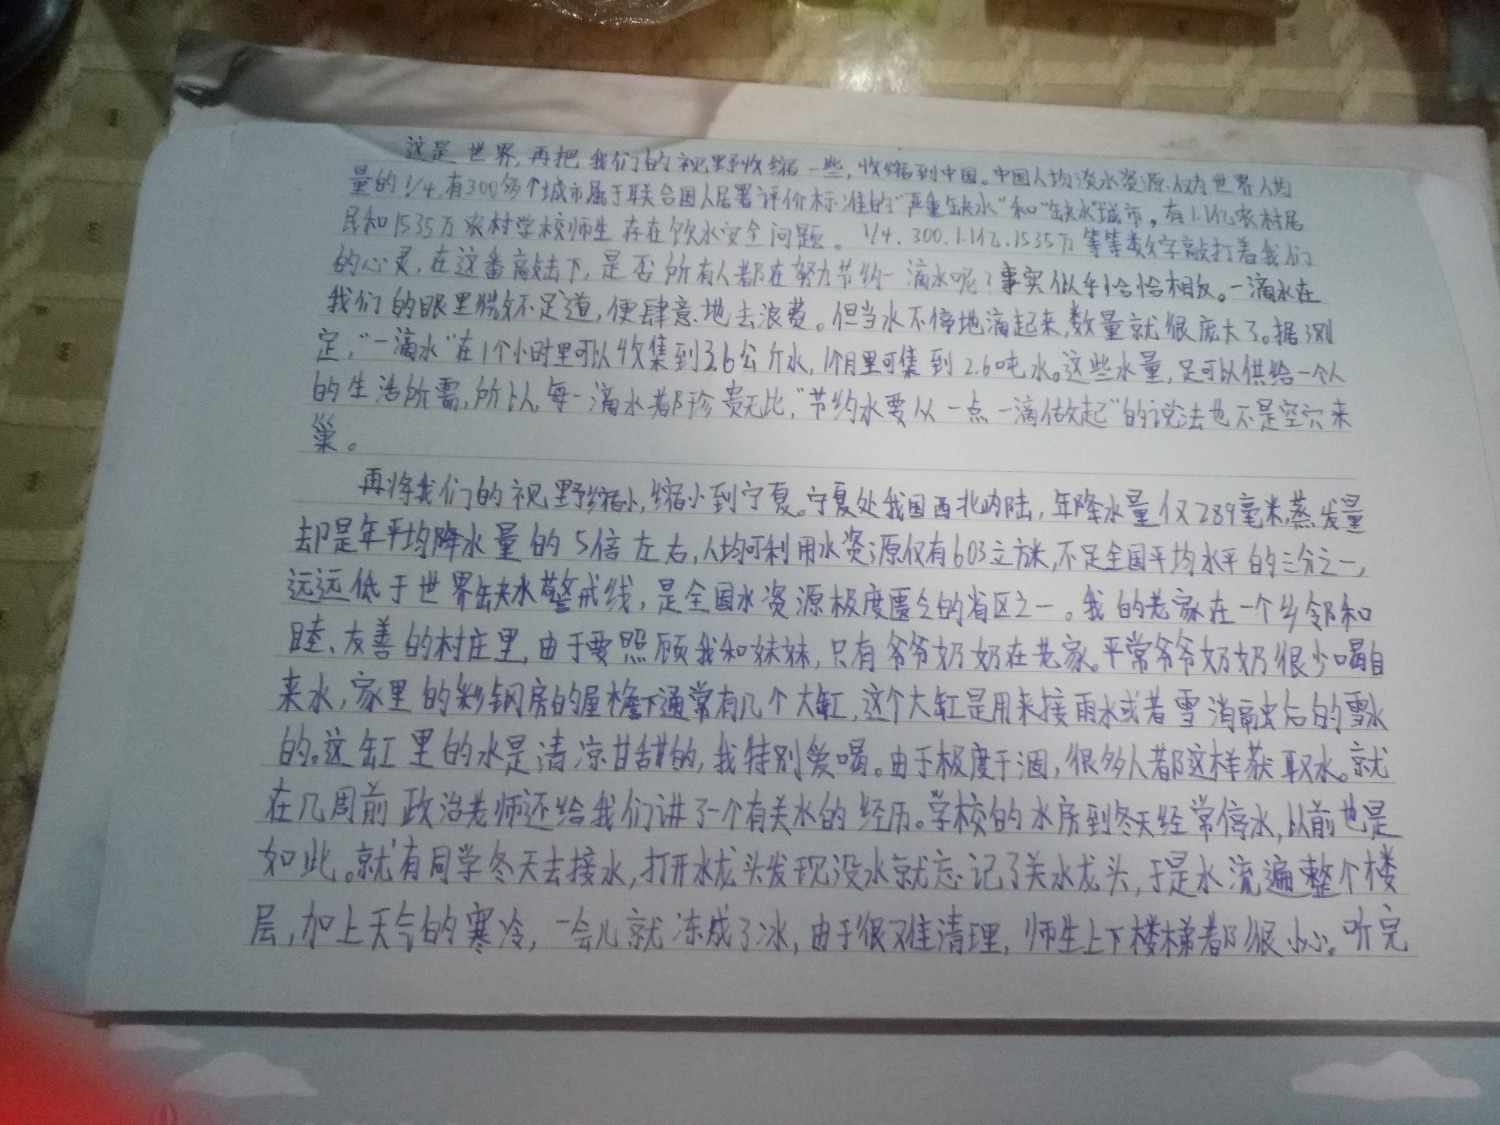 这是世界,再把我们的视野收缩一些,收缩到中国。中国人均淡水资源仅为世界人均
量的1/4,有300多个城市属于联合国人居署评价标准的“严重缺水”和“缺水”城市。有1.1亿农村居
民和1535万农村学校师生存在饮水安全问题。1/4、300、1.1亿、1535万等等数字敲打着我们
的心灵,在这番敲击下,是否所有人都在努力节约一滴水呢?事实似乎恰恰相反。一滴水在
我们的眼里微不足道,便肆意地去浪费。但当水不停地滴起来,数量就很庞大了。据测
定,“一滴水”在1个小时里可以收集到3.6公斤水,1个月里可集到2.6吨水。这些水量,足可以供给一个人
的生活所需,所以,每一滴水都珍贵无比,“节约水要从一点一滴做起”的说法也不是空穴来
巢。
再将我们的视野缩小,缩小到宁夏。宁夏处我国西北内陆,年降水量仅289毫米,蒸发量
却是年平均降水量的5倍左右,人均可利用水资源仅有603立方米,不足全国平均水平的三分之一,
远远低于世界缺水警戒线,是全国水资源极度匮乏的省区之一。我的老家在一个乡邻和
睦、友善的村庄里,由于要照顾我和妹妹,只有爷爷奶奶在老家。平常爷爷奶奶很少喝自
来水,家里的彩钢房的屋檐下通常有几个大缸,这个大缸是用来接雨水或者雪消融后的雪水
的。这缸里的水是清凉甘甜的,我特别爱喝。由于极度干涸,很多人都这样获取水。就
在几周前政治老师还给我们讲了一个有关水的经历。学校的水房到冬天经常停水,以前也是
如此。就有同学冬天去接水,打开水龙头发现没水就忘记了关水龙头,于是水流遍整个楼
层,加上天气的寒冷,一会儿就冻成了冰,由于很难清理,师生上下楼梯都很小心。听完